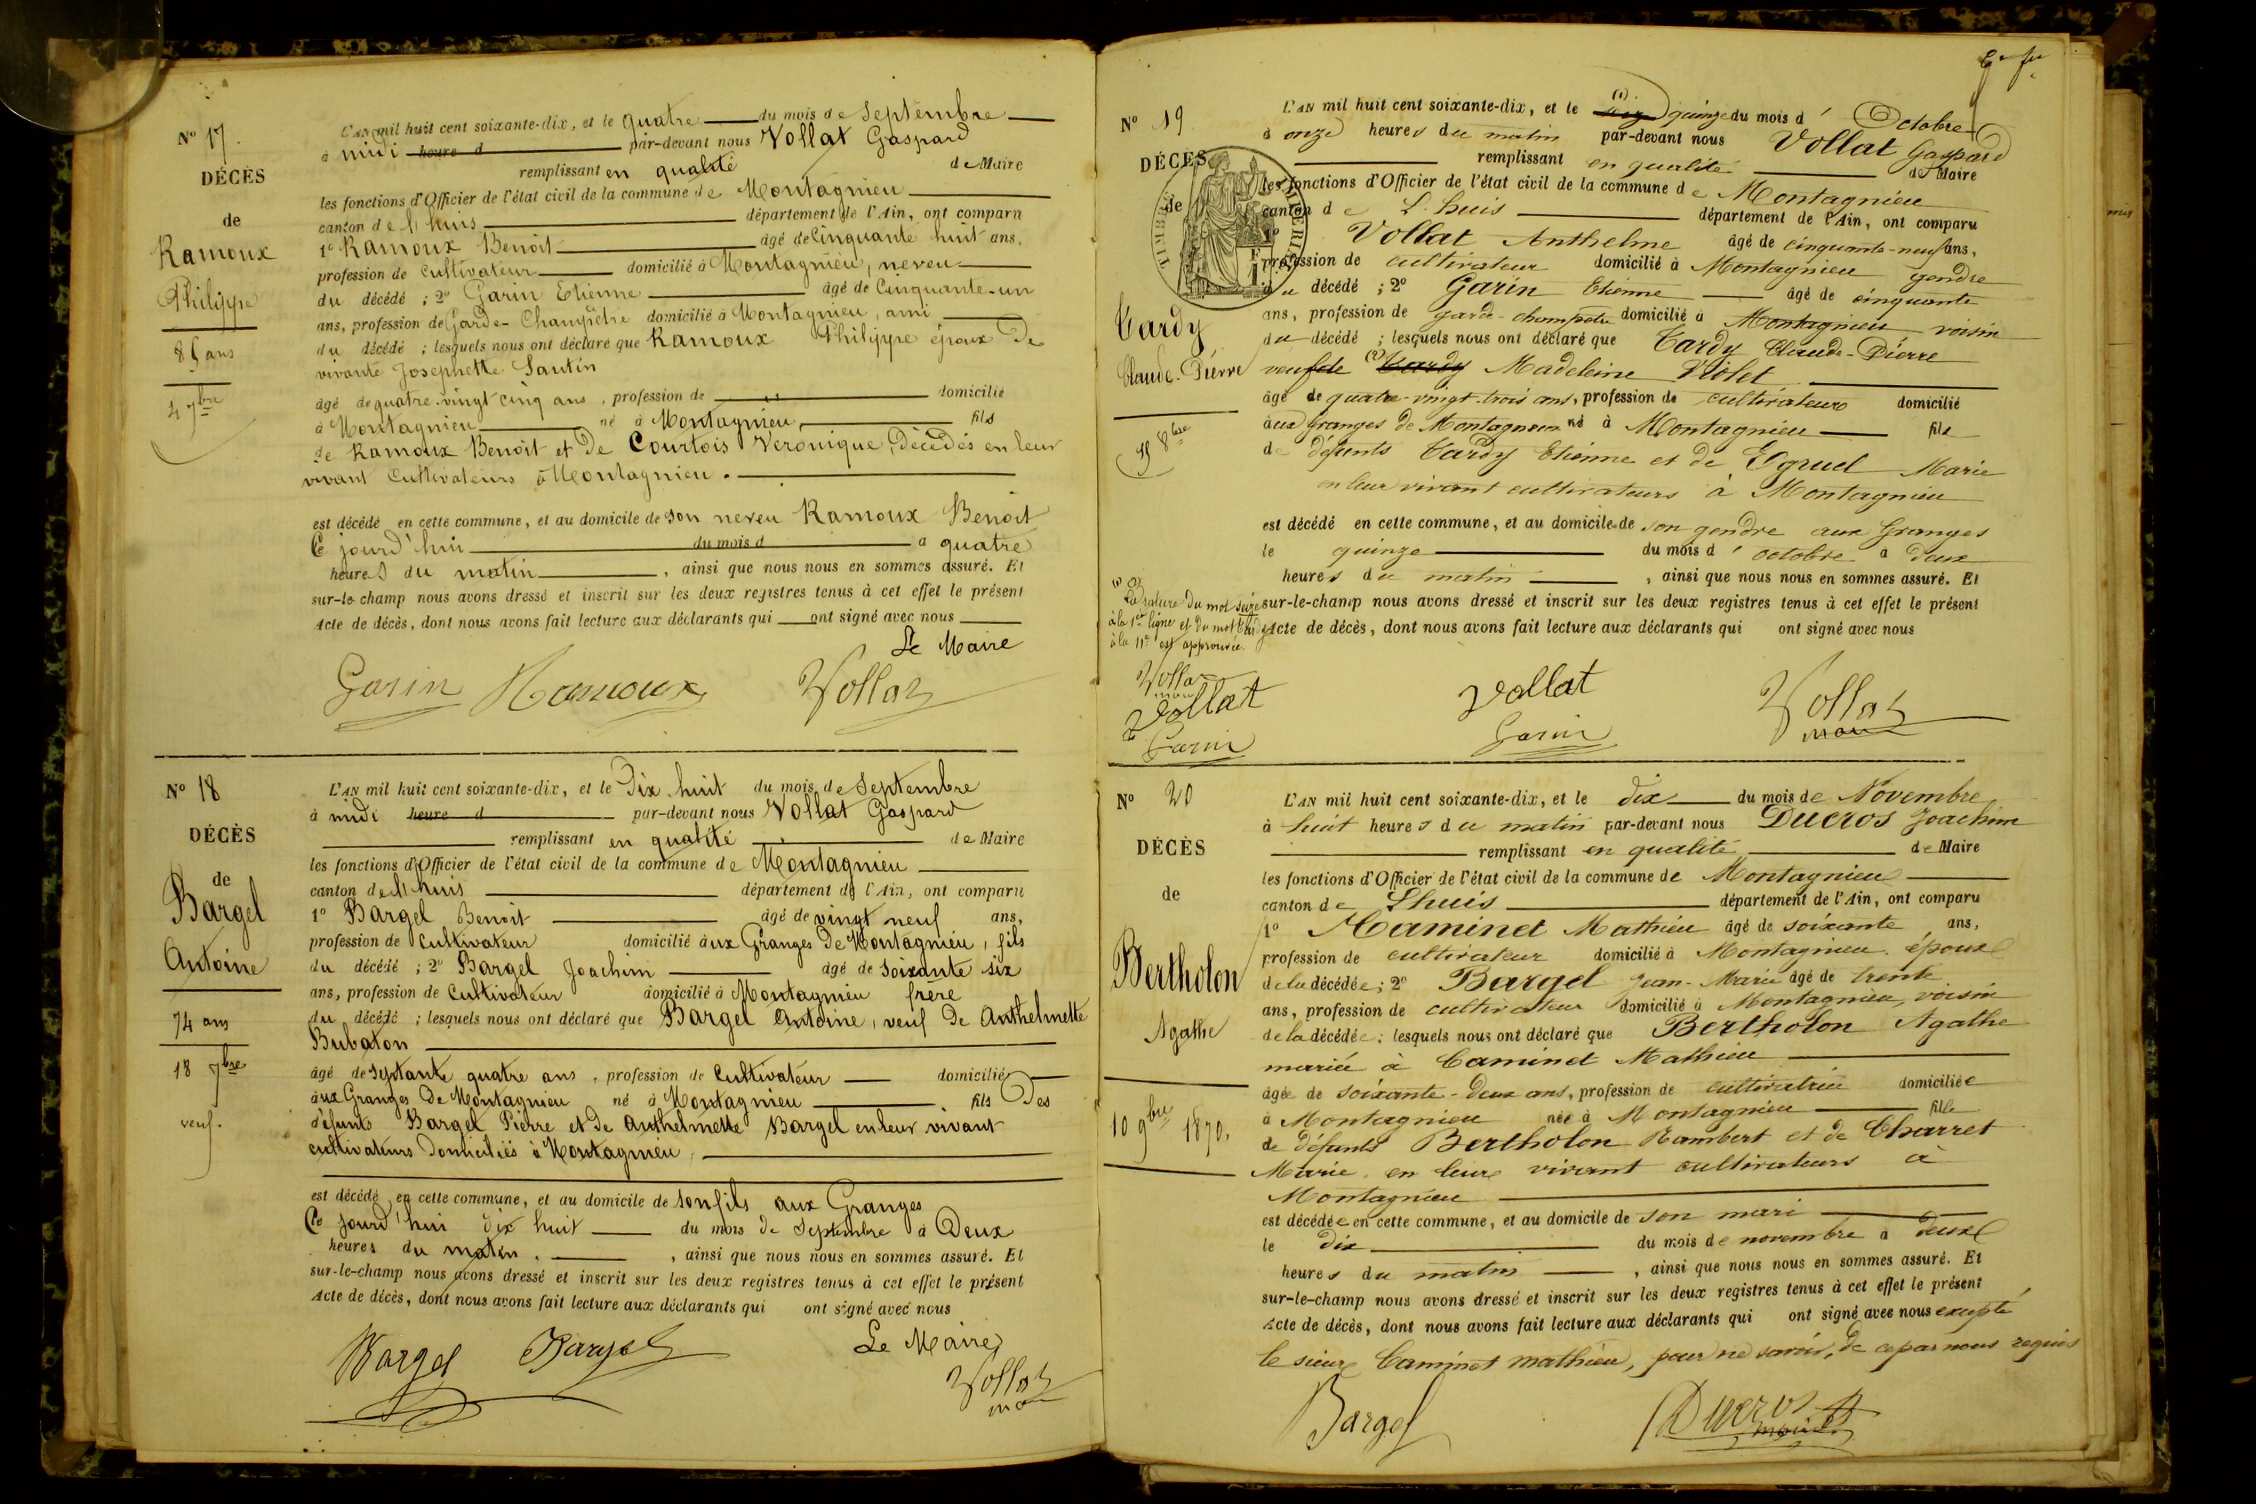 N° 17.
DÉCÈS
de
Ramoux
Philippe
85 ans
4 7bre
L'AN mil huit cent soixante-dix, et le quatre du mois de Septembre
à midi heure d par-devant nous Vollat Gaspard
remplissant en qualité de Maire
les fonctions d'Officier de l'état civil de la commune de Montagnieu
canton de l'huis département de l'Ain, ont comparu
1° Ramoux Benoit âgé de Cinquante huit ans,
profession de Cultivateur domicilié à Montagnieu, neveu
du décédé ; 2° Garin Etienne âgé de Cinquante-un
ans, profession de Garde-Champêtre domicilié à Montagnieu, ami
du décédé ; lesquels nous ont déclaré que Ramoux Philippe époux De
vivante Josephette Santin
âgé de quatre-vingt cinq ans, profession de domicilié
à Montagnieu né à Montagnieu, fils
de Ramoux Benoit et De Courtois Veronique, Décédés en leur
vivant Cultivateurs à Montagnieu.
est décédé en cette commune, et au domicile de son neveu Ramoux Benoit
Ce jourd'hui du mois d à quatre
heures du matin, ainsi que nous nous en sommes assuré. Et
sur-le-champ nous avons dressé et inscrit sur les deux registres tenus à cet effet le présent
Acte de décès, dont nous avons fait lecture aux déclarants qui ont signé avec nous
Le Maire
Garin Ramoux Vollat
N° 18
DÉCÈS
de
Bargel
Antoine
74 ans
18 7bre
veuf.
L'AN mil huit cent soixante-dix, et le Dix huit du mois de Septembre
à midi heure d par-devant nous Vollat Gaspard
remplissant en qualité de Maire
les fonctions d'Officier de l'état civil de la commune de Montagnieu
canton de l'huis département de l'Ain, ont comparu
1° Bargel Benoit âgé de vingt neuf ans,
profession de Cultivateur domicilié aux Granges De Montagnieu, fils
du décédé ; 2° Bargel Joachim âgé de soixante six
ans, profession de Cultivateur domicilié à Montagnieu frère
du décédé ; lesquels nous ont déclaré que Bargel Antoine, veuf De Anthelmette
Bubaton
âgé de septante quatre ans, profession de Cultivateur domicilié
aux Granges De Montagnieu né à Montagnieu fils Des
défunts Bargel Pierre et De Anthelmette Bargel en leur vivant
cultivateurs Domiciliés à Montagnieu,
est décédé en cette commune, et au domicile de son fils aux Granges
Ce jourd'hui dix huit du mois de Septembre à Deux
heures du matin, ainsi que nous nous en sommes assuré. Et
sur-le-champ nous avons dressé et inscrit sur les deux registres tenus à cet effet le présent
Acte de décès, dont nous avons fait lecture aux déclarants qui ont signé avec nous
Le Maire
Bargel Bargel Vollat
N° 19
DÉCÈS
de
Tardy
Claude-Pierre
15 8bre
L'AN mil huit cent soixante-dix, et le (1) quinze du mois d'Octobre
à onze heures du matin par-devant nous Vollat Gaspard
remplissant en qualité de Maire
les fonctions d'Officier de l'état civil de la commune de Montagnieu
canton de L'huis département de l'Ain, ont comparu
1° Vollat Anthelme âgé de cinquante-neuf ans,
profession de cultivateur domicilié à Montagnieu gendre
du décédé ; 2° Garin Etienne âgé de cinquante
ans, profession de garde-champetre domicilié à Montagnieu voisin
du décédé ; lesquels nous ont déclaré que Tardy Claude-Pierre
veuf de (2) Tardy Madeleine Violet
âgé de quatre-vingt-trois ans, profession de cultivateur domicilié
aux granges de Montagnieu né à Montagnieu fils
de défunts Tardy Etienne et de Marie
en leur vivant cultivateurs à Montagnieu
est décédé en cette commune, et au domicile de son gendre aux Granges
le quinze du mois d'octobre à deux
heures du matin, ainsi que nous nous en sommes assuré. Et
sur-le-champ nous avons dressé et inscrit sur les deux registres tenus à cet effet le présent
Acte de décès, dont nous avons fait lecture aux déclarants qui ont signé avec nous
(1) (2)
La rature du mot seize
à la 1re ligne et du mot Tardy
à la 11e est approuvée.
Vollat
Vollat
Garin
Vollat
Garin
Vollat
maire
N° 20
DÉCÈS
de
Bertholon
Agathe
10 9bre 1870.
L'AN mil huit cent soixante-dix, et le dix du mois de Novembre
à huit heures du matin par-devant nous Ducros Joachim
remplissant en qualité de Maire
les fonctions d'Officier de l'état civil de la commune de Montagnieu
canton de Lhuis département de l'Ain, ont comparu
1° Caminet Mathieu âgé de soixante ans,
profession de cultivateur domicilié à Montagnieu époux
de la décédée ; 2° Bargel Jean-Marie âgé de trente
ans, profession de cultivateur domicilié à Montagnieu, voisin
de la décédée ; lesquels nous ont déclaré que Bertholon Agathe
mariée à Caminet Mathieu
âgée de soixante-deux ans, profession de cultivatrice domiciliée
à Montagnieu née à Montagnieu fille
de défunts Bertholon Rambert et de Charret
Marie en leur vivant cultivateurs à
Montagnieu
est décédée en cette commune, et au domicile de son mari
le dix du mois de novembre à deux
heures du matin, ainsi que nous nous en sommes assuré. Et
sur-le-champ nous avons dressé et inscrit sur les deux registres tenus à cet effet le présent
Acte de décès, dont nous avons fait lecture aux déclarants qui ont signé avec nous excepté
le sieur Caminet mathieu, pour ne savoir, de ce par nous requis
Bargel Ducros
maire